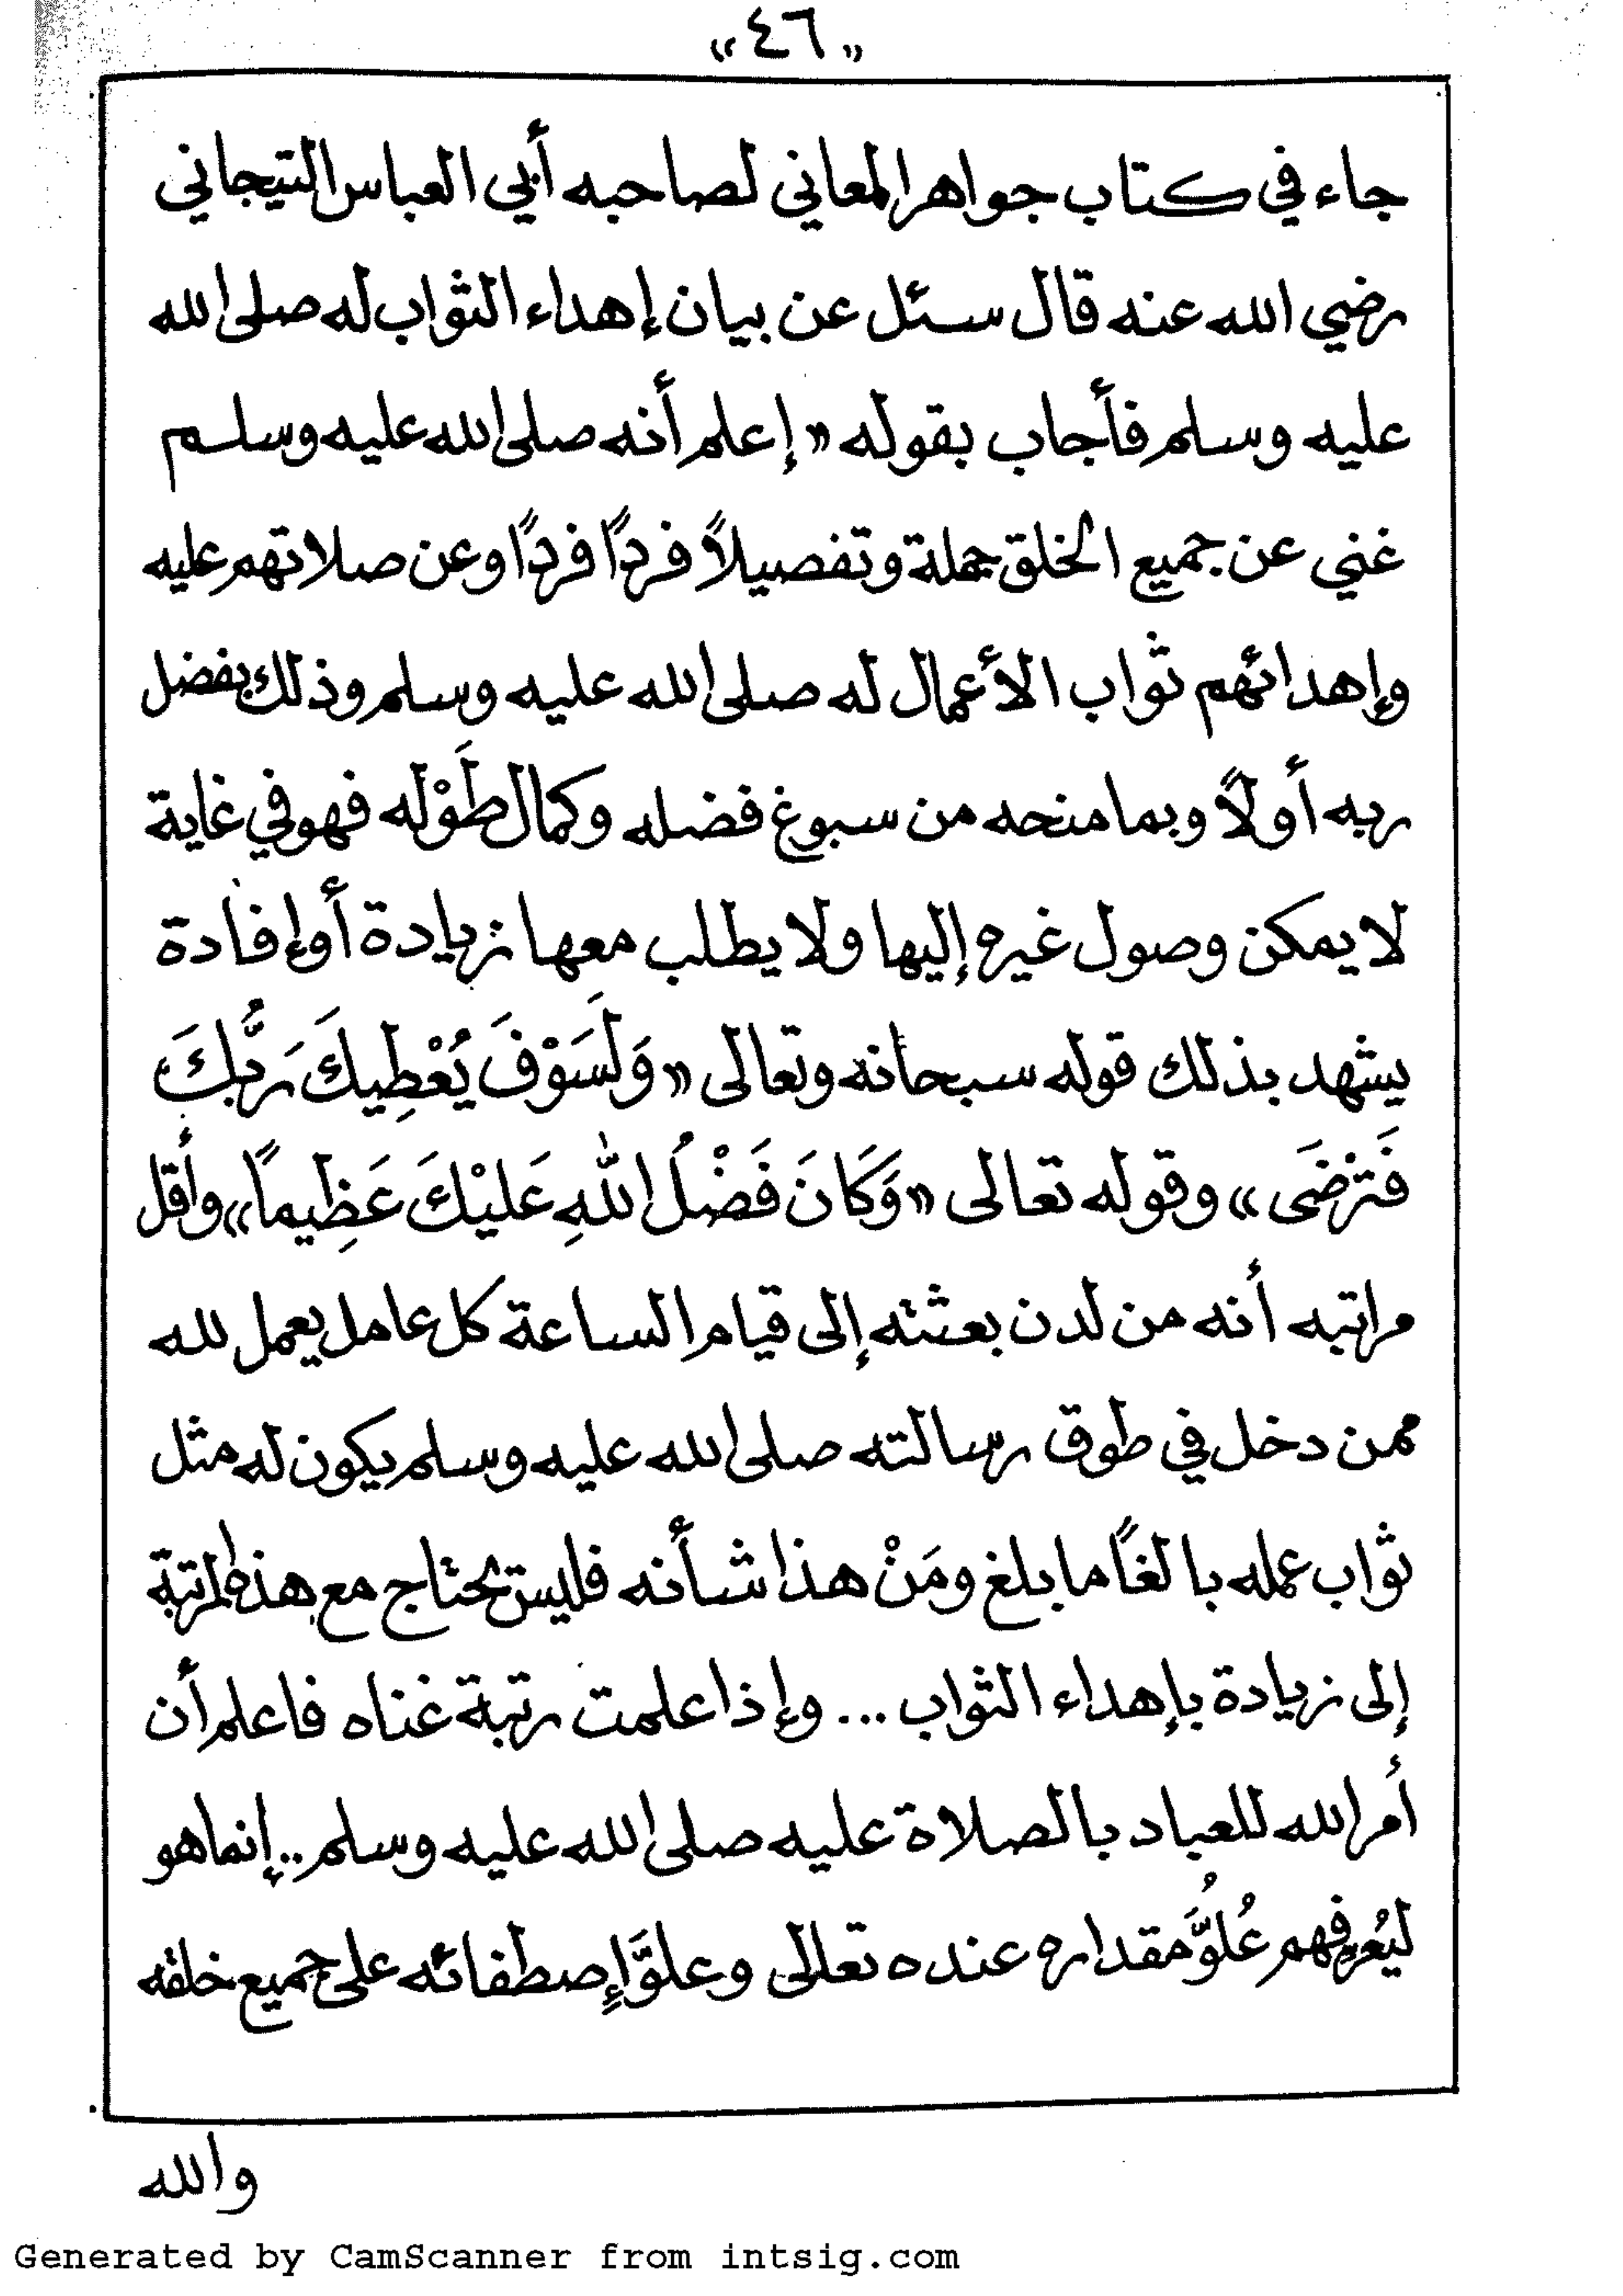 «٤٦»
جاء في كتاب جواهر المعاني لصاحبه أبي العباس التيجاني
رضي الله عنه قال سئل عن بيان إهداء الثواب له صلى الله
عليه وسلم فأجاب بقوله «إعلم أنه صلى الله عليه وسلم
غني عن جميع الخلق جملة وتفصيلاً فردًا فردًا وعن صلاتهم عليه
وإهدائهم ثواب الأعمال له صلى الله عليه وسلم وذلك بفضل
ربه أولاً وبما منحه من سبوغ فضله وكمال طَوْله فهو في غاية
لا يمكن وصول غيره إليها ولا يطلب معها زيادة أو إفادة
يشهد بذلك قوله سبحانه وتعالى «وَلَسَوْفَ يُعْطِيكَ رَبُّكَ
فَتَرْضَى» وقوله تعالى «وَكَانَ فَضْلُ اللهِ عَلَيْكَ عَظِيماً» وأقل
مراتبه أنه من لدن بعثته إلى قيام الساعة كل عامل يعمل لله
ممن دخل في طوق رسالته صلى الله عليه وسلم يكون له مثل
ثواب عمله بالغًا ما بلغ ومَنْ هذا شأنه فليس يحتاج مع هذه المرتبة
إلى زيادة بإهداء الثواب ... وإذا علمت رتبة غناه فاعلم أن
أمر الله للعباد بالصلاة عليه صلى الله عليه وسلم .. إنما هو
ليُعرفهم عُلوَّ مقداره عنده تعالى وعلوَّ إِصطفائه على جميع خلقه
والله
Generated by CamScanner from intsig.com